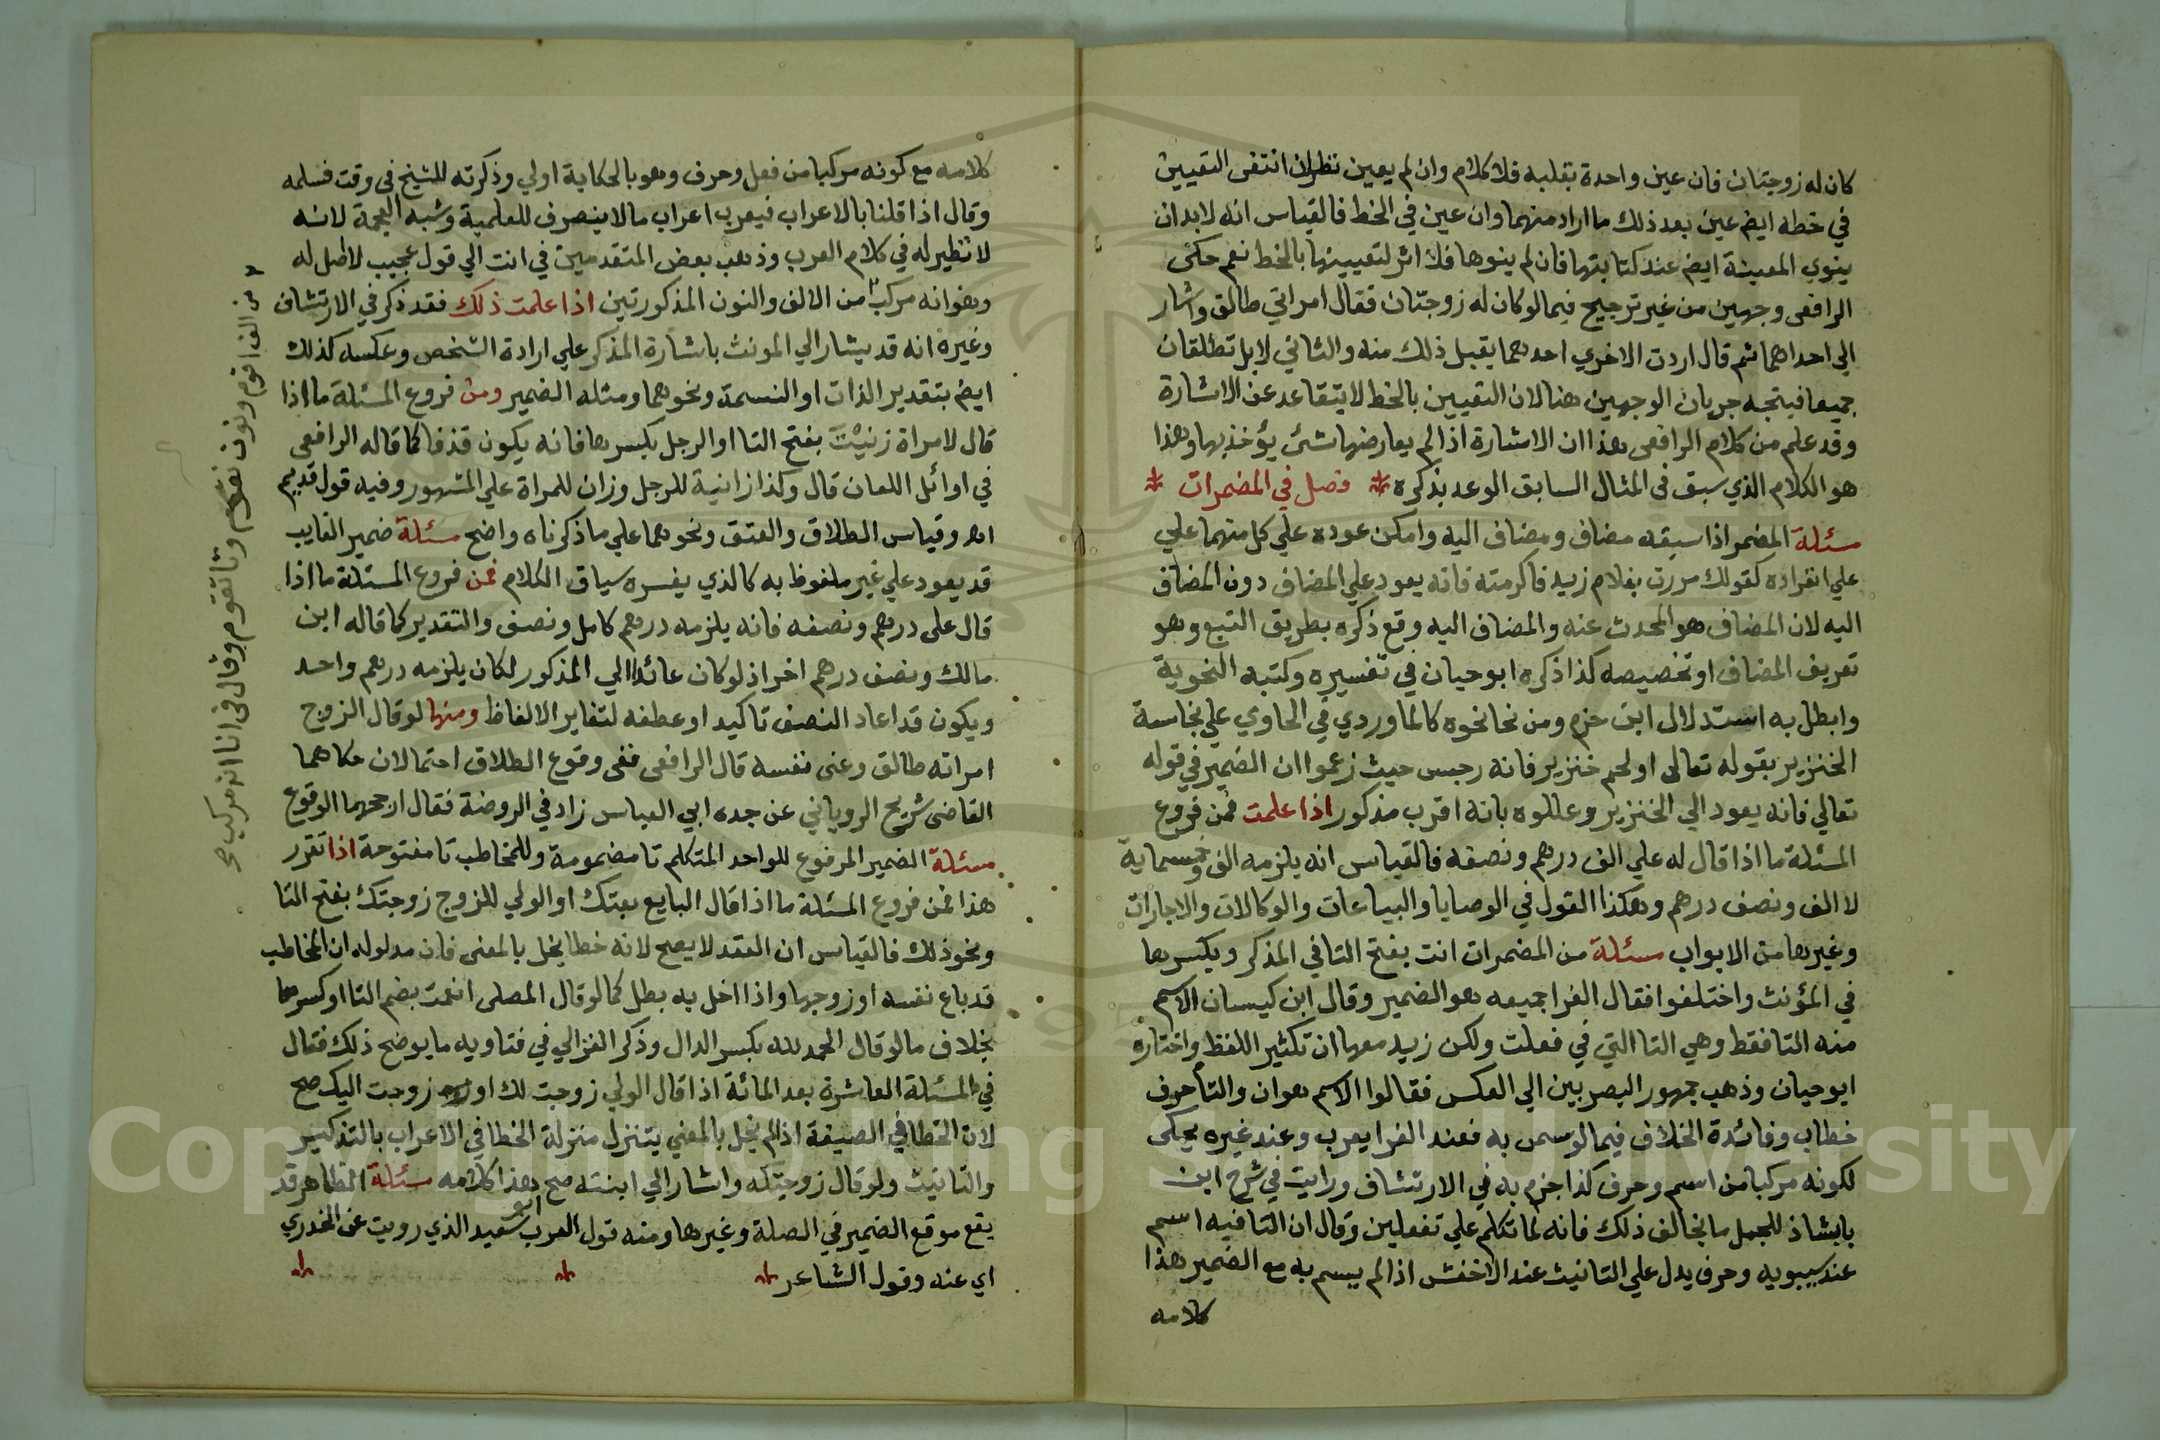 كان له زوجتان فان عين واحدة بقلبه فلا كلام وان لم يعين نظر ان انتفى التعيين
في خطه ايض عين بعد ذلك ما اراد منهما وان عين في الخط فالقياس انه لا بد ان
ينوي المعينة ايض عند كتابتها فان لم ينوها فلا اثر لتعيينها بالخط نعم حكى
الرافعى وجهين من غير ترجيح فيما لو كان له زوجتان فقال امراتي طالق واشار
الى احداهما ثم قال اردت الاخرى احدهما يقبل ذلك منه والثاني لا بل تطلقان
جميعا فيتجه جريان الوجهين هنا لان التعيين بالخط لا يتقاعد عن الاشارة
وقد علم من كلام الرافعى هذا ان الاشارة اذا لم يعارضها شئ يؤخذ بها وهذا
هو الكلام الذي سبق في المثال السابق الوعد بذكره فصل في المضمرات
مسئلة المضمر اذا سبقه مضاف ومضاف اليه وامكن عوده علي كل منهما علي
علي انفراده كقولك مررت بغلام زيد فاكرمته فانه يعود علي المضاف دون المضاف
اليه لان المضاف هو المحدث عنه والمضاف اليه وقع ذكره بطريق التبع وهو
تعريف المضاف او تخصيصه كذا ذكره ابو حيان في تفسيره وكتبه النحوية
وابطل به استدلال ابن حزم ومن نحا نحوه كالماوردي في الحاوي علي نجاسة
الخنزير بقوله تعالى او لحم خنزير فانه رجس حيث زعموا ان الضمير في قوله
تعالي فانه يعود الي الخنزير وعللوه بانه اقرب مذكور اذا علمت فمن فروع
المسئلة ما اذا قال له علي الف درهم ونصفه فالقياس انه يلزمه الف وخمسماية
لا الف ونصف درهم وهكذا القول في الوصايا والبياعات والوكالات والاجارات
وغيرها من الابواب مسئلة من المضمرات انت بفتح التا في المذكر وبكسرها
في المؤنث واختلفوا فقال الفرا جميعه هو الضمير وقال ابن كيسان الاسم
منه التا فقط وهي التا التي في فعلت ولكن زيد معها ان تكثير اللفظ واختاره
ابو حيان وذهب جمهور البصريين الي العكس فقالوا الاسم هو ان والتا حرف
خطاب وفائدة الخلاف فيما لو سمى به فعند الفرا يعرب وعند غيره يحكى
لكونه مركبا من اسم وحرف كذا جزم به في الارتشاف ورايت في شرح ابن
بابشاذ للجمل ما يخالف ذلك فانه لما تكلم علي تفعلين وقال ان التا فيه اسم
عند سيبويه وحرف يدل علي التانيث عند الاخفش اذا لم يسم به مع الضمير هذا
كلامه
كلامه مع كونه مركبا من فعل وحرف وهو بالحكاية اولي وذكرته للشيخ في وقت فسلمه
وقال اذا قلنا بالاعراب فيعرب اعراب ما لا ينصرف للعلمية وشبه العجمة لانه
لا نظير له في كلام العرب وذهب بعض المتقدمين في انت الي قول عجيب لا اصل له
وهو انه مركب من الالف والنون المذكورتين اذا علمت ذلك فقد ذكر في الارتشاف
وغيره انه قد يشار الي المونث باشارة المذكر علي ارادة الشخص وعكسه كذلك
ايض بتقدير الذات او النسمة ونحوهما ومثله الضمير ومن فروع المسئلة ما اذا
قال لامراة زنيت بفتح التا او الرجل بكسرها فانه يكون قذفا كما قاله الرافعى
في اوائل اللعان قال وكذا زانية للرجل وزان للمراة علي المشهور وفيه قول قديم
اه وقياس الطلاق والعتق ونحوهما علي ما ذكرناه واضح مسئلة ضمير الغايب
قد يعود علي غير ملفوظ به كالذي يفسره سياق الكلام فمن فروع المسئلة ما اذا
قال على درهم ونصفه فانه يلزمه درهم كامل ونصف والتقدير كما قاله ابن
مالك ونصف درهم اخر اذ لو كان عائدا الي المذكور لكان يلزمه درهم واحد
ويكون قد اعاد النصف تاكيد او عطفه لتغاير الالفاظ ومنها لو قال الزوج
امراته طالق وعنى نفسه قال الرافعى ففى وقوع الطلاق احتمالان حكاهما
القاضى شريح الروياني عن جده ابي العباس زاد في الروضة فقال ارجحهما الوقوع
مسئلة الضمير المرفوع للواحد المتكلم تا مضمومة وللمخاطب تا مفتوحة اذا تقرر
هذا فمن فروع المسئلة ما اذا قال البايع بعتك او الولي للزوج زوجتك بفتح التا
ونحو ذلك فالقياس ان العقد لا يصح لانه خطا يخل بالمعنى فان مدلوله ان المخاطب
قد باع نفسه او زوجها واذا اخل به بطل كما لو قال المصلى انعمت بضم التا او كسرها
بخلاف ما لو قال الحمد لله بكسر الدال وذكر الغزالي في فتاويه ما يوضح ذلك فقال
في المسئلة العاشرة بعد المائة اذا قال الولي زوجت لك او زوجت اليك صح
لان الخطا في الصيغة اذا لم يخل بالمعني يتنزل منزلة الخطا في الاعراب بالتذكير
والتانيث ولو قال زوجتكه واشار الي ابنته صح هذا كلامه مسئلة الظاهر قد
يقع موقع الضمير في الصلة وغيرها ومنه قول العرب ابو سعيد الذي رويت عن الخدري
اي عنه وقول الشاعر
من الف اقوم ونون نقوم وتا تقوم وقال في انا انه مركب صح
Copyright © King Saud University